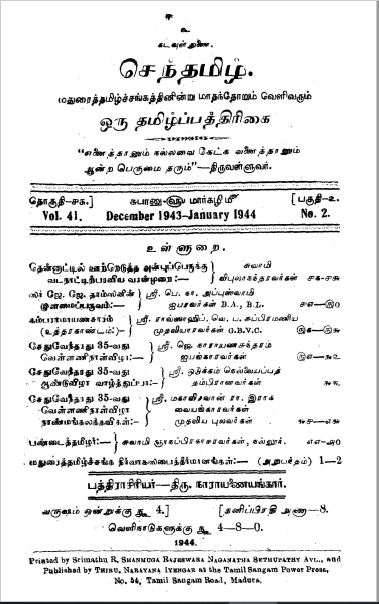 உ
கடவுள் துணை.
செந்தமிழ்.
மதுரைத்தமிழ்ச்சங்கத்தினின்று மாதந்தோறும் வெளிவரும்
ஒரு தமிழ்ப்பத்திரிகை
"எனைத்தானும் நல்லவை கேட்க வனைத்தானும்
ஆன்ற பெருமை தரும்"—திருவள்ளுவர்.
தொகுதி-சக.] சுபானு-௵ மார்கழி௴ [பகுதி-உ.
Vol. 41. December 1943-January 1944 No. 2.
உள்ளுறை.
தென்னாட்டில் ஊற்றெடுத்த அன்புப்பெருக்கு சுவாமி
வடநாட்டிற்பரவிய வரன்முறை:— விபுலாநந்தரவர்கள்
ஸர் ஜே. ஜே. தாம்ஸனின் ஸ்ரீ. பெ. நா. அப்புஸ்வாமி
ஐயரவர்கள் B.A., B.L. ௪௭—௫௦
கம்பராமாயணசாரம் ஸ்ரீ. ராவ்ஸாஹிப். வெ. ப. சுப்பிரமணிய
(உத்தரகாண்டம்:-) முதலியாரவர்கள் G.B.V.C.
சேதுவேந்தரது 35-வது ஸ்ரீ. ஜெ. நாராயணசுந்தரம
வெள்ளணிநாள்விழா:— ஐயங்காரவர்கள்
சேதுவேந்தரது 35-வது ஸ்ரீ. ஒடுக்கம் நெல்லையப்பத்
ஆண்டுவிழா வாழ்த்துப்பா:— தம்பிரானவர்கள்
சேதுவேந்தரது 35-வது ஸ்ரீ. மகாவித்வான் ரா. இராக
வெள்ளணிநாள்விழா வையங்காரவர்கள்
நாண்மங்கலக்கவிகள்:— முதலிய புலவர்கள்
பண்டைத்தமிழர்:— சுவாமி ஞானப்பிரகாசரவர்கள், நல்லூர். எஎ-அ௦
மதுரைத்தமிழ்ச்சங்க நிர்வாகஸபைத்தீர்மானங்கள்:— (அநுபந்தம்) 1—2
பத்திராசிரியர்—திரு. நாராயணையங்கார்.
வருஷம் ஒன்றுக்கு ரூ 4.] [தனிப்பிரதி அணா—8.
வெளிநாடுகளுக்கு ரூ 4—8—0.
1944.
Printed by Srimathu R. SHANMUGA RAJESWARA NAGANATHA SETHUPATHY AVL., and
Published by THIRU. NARAYANA IYENGAR at the Tamil Sangam Power Press,
No. 54, Tamil Sangam Road, Madura.